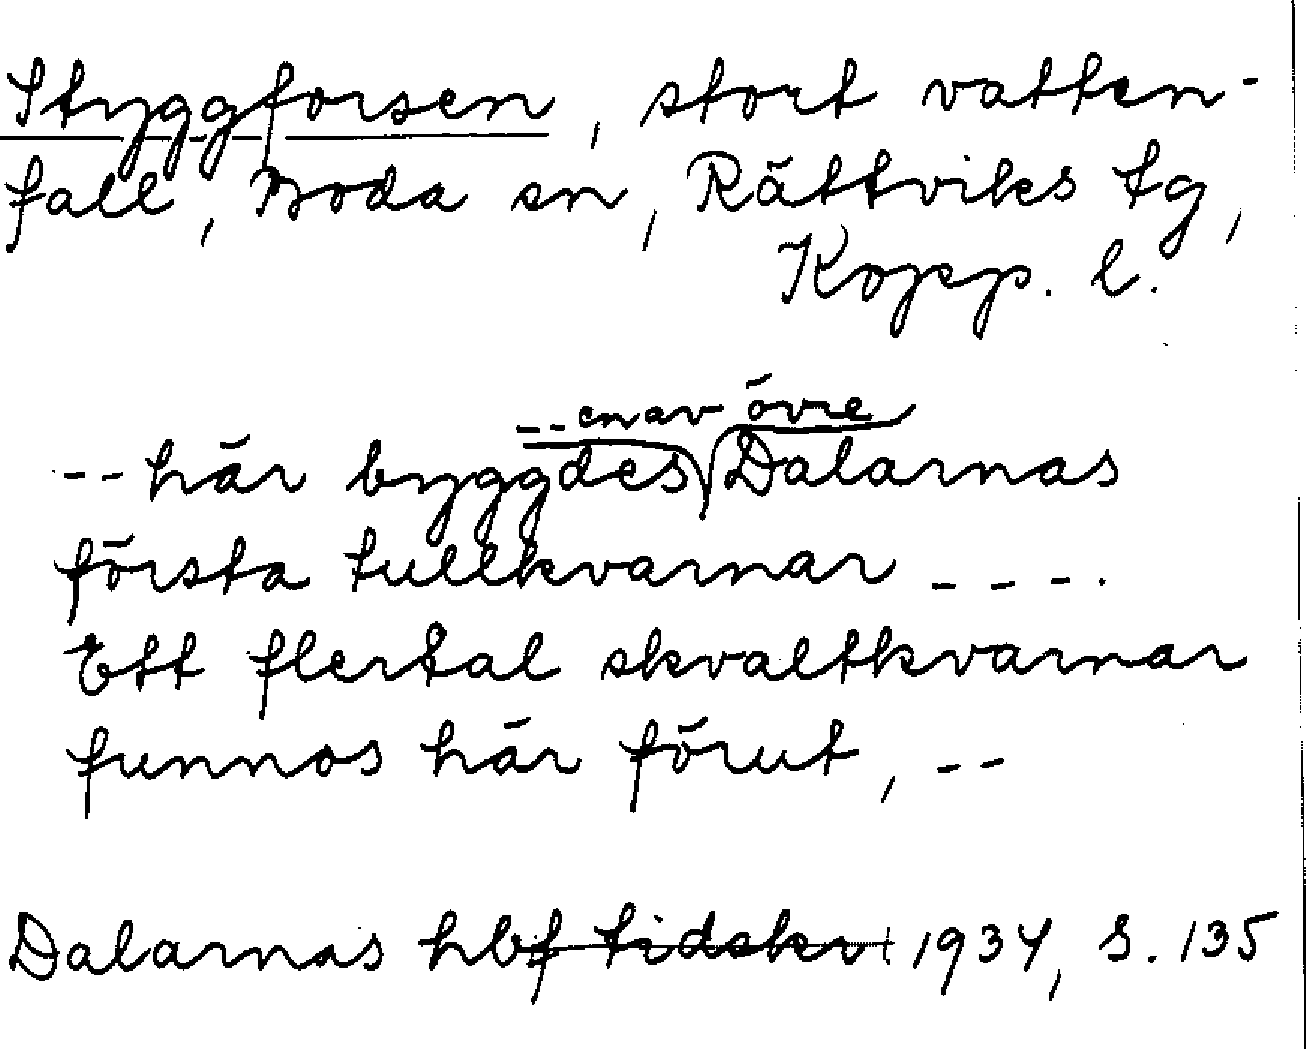 Styggforsen, stort vatten-
fall, Boda sn, Rättviks tg,
Kopp. l.
-- en av övre
-- här byggdes Dalarnas
första tullkvarnar - - - .
Ett flertal skvaltkvarnar
funnos här förut, --
Dalarnas hbf tidskr 1934, s. 135